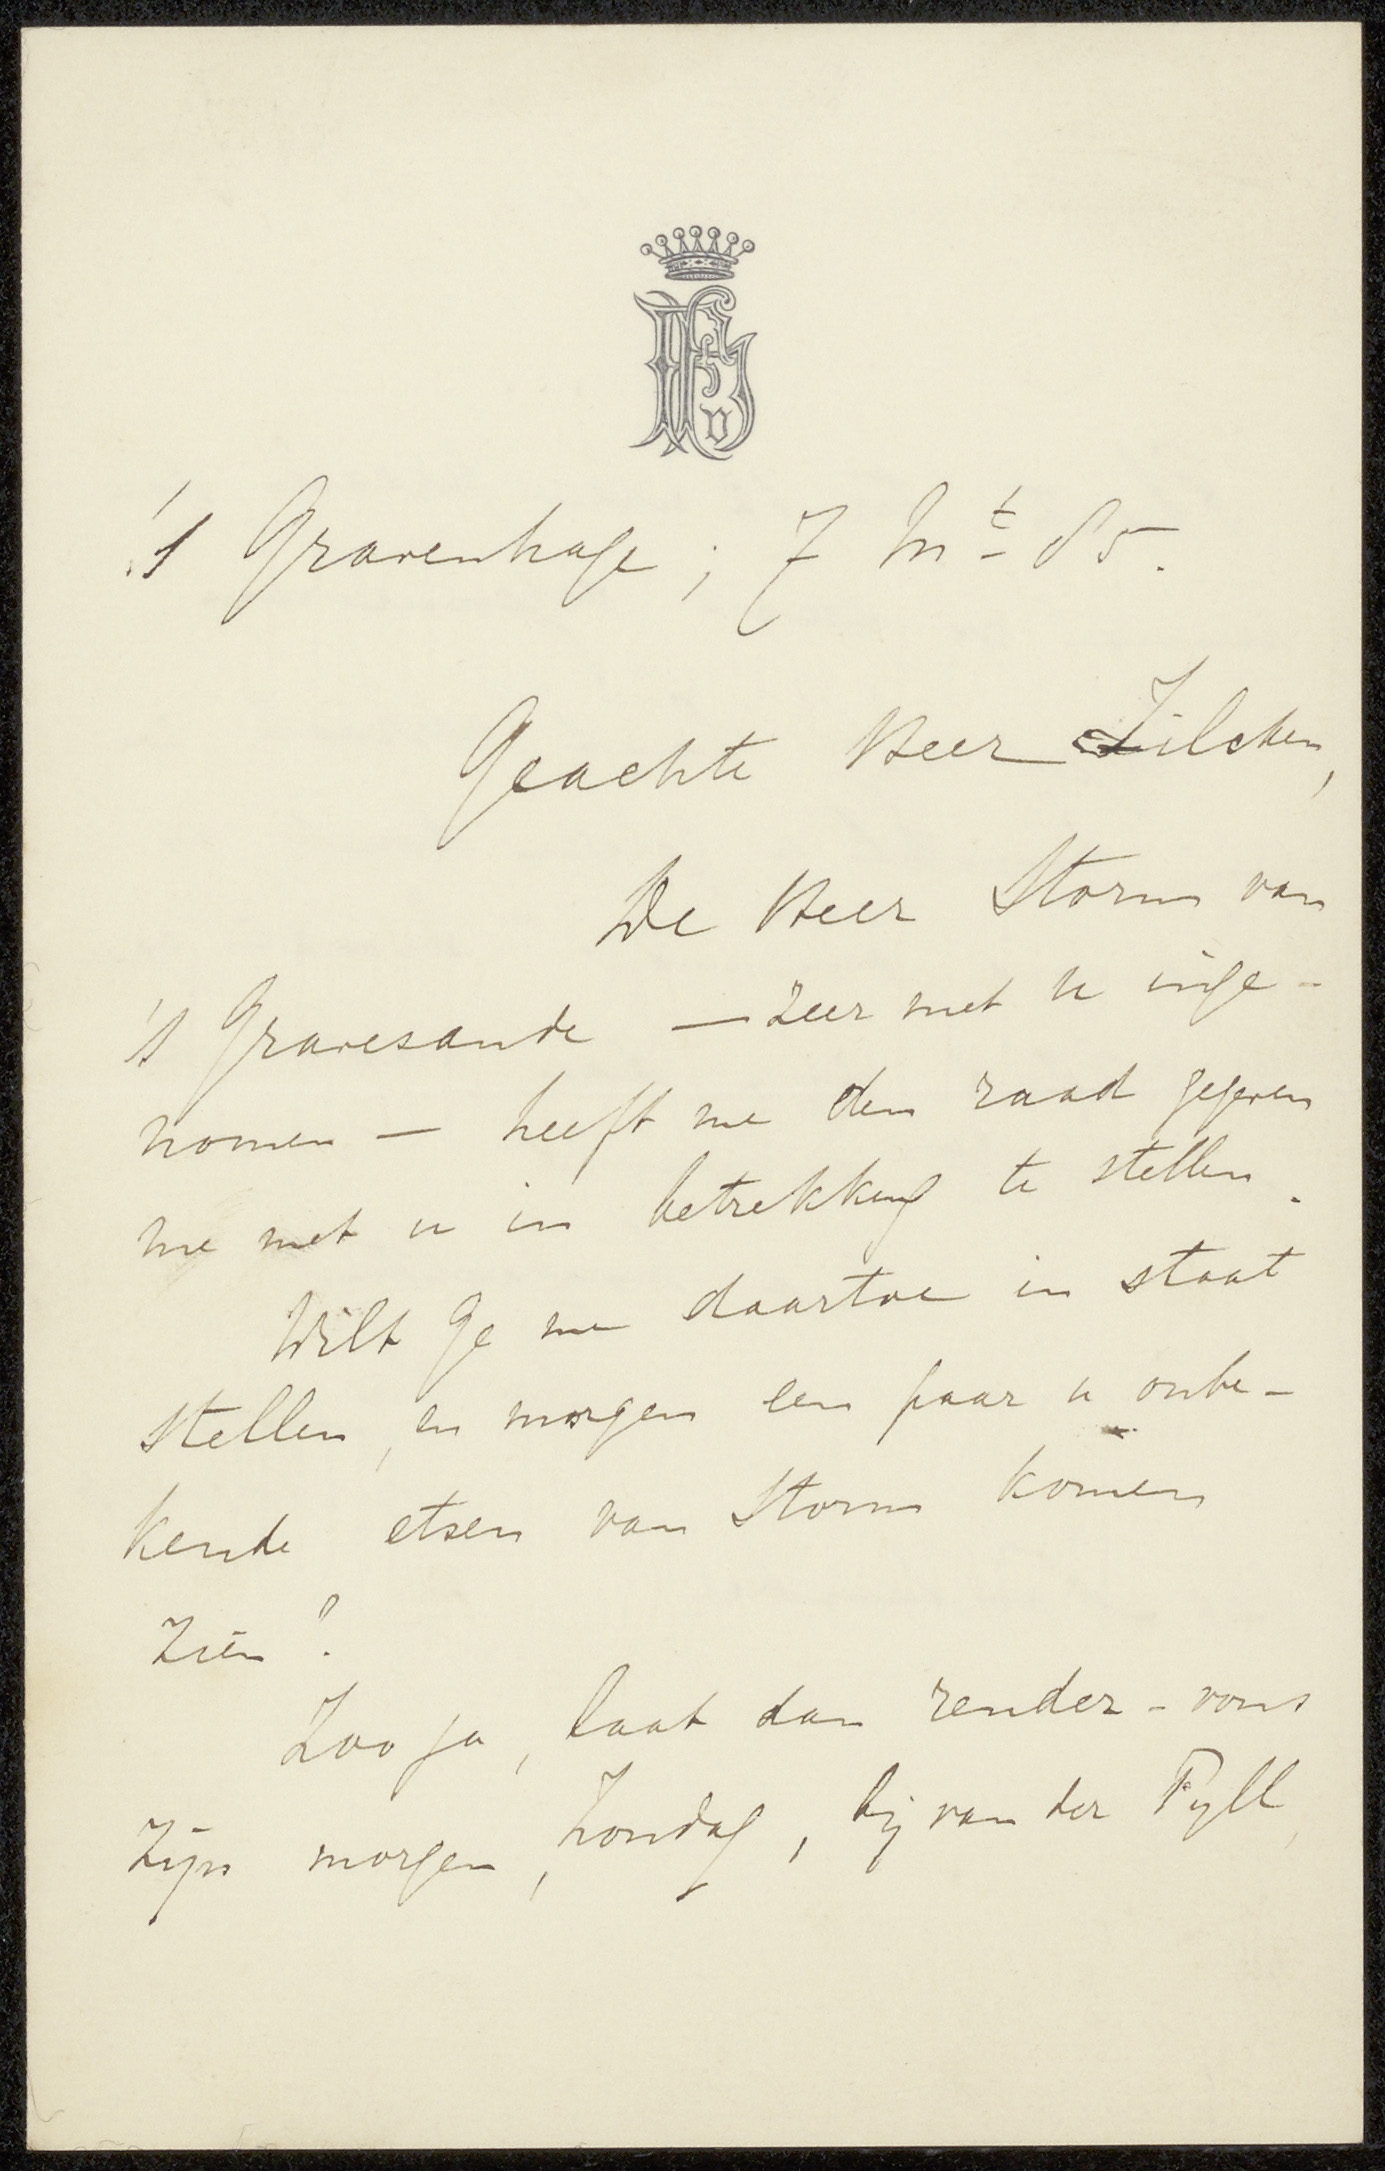 's Gravenhage; 7 Mt 85.
Geachte Heer Zilcken,
De Heer Storm van
's Gravesande — zeer met u inge-
nomen — heeft me den raad gegeven
me met u in betrekking te stellen.
Wilt ge me daartoe in staat
stellen, en morgen een paar u onbe-
kende etsen van Storm komen
zien?
Zoo ja, laat dan rendez-vous
zijn morgen, Zondag, bij van der Pyll,